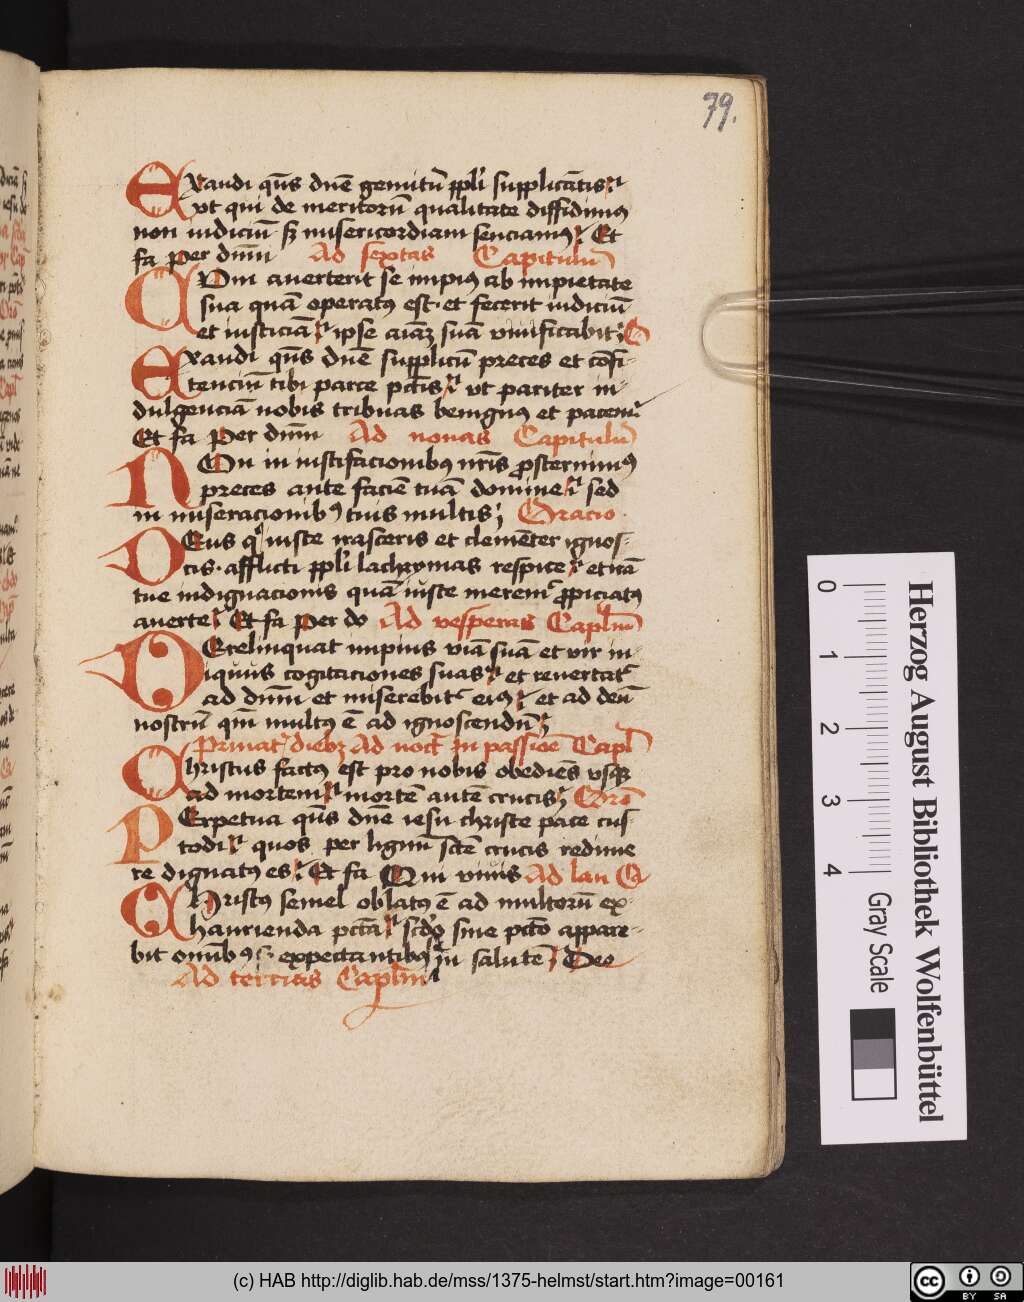 79.
Exaudi qs̄ dn̄e gemitū ppl̓i supplicātis
ut qui de meritorū qualitate diffidimꝰ
non iudiciū sꝫ misericordiam senciamꝰ Et
fa per dnm̄ Ad sextas Capitulū
Cvm averterit se impiꝰ ab impietate
sua quā operatꝰ est et fecerit iudiciū
et iusticiā ipse aīaꝫ suā vivificabit
Exaudi qs̄ dn̄e supplicū preces et cōfi-
tenciū tibi parce pctīs ut pariter in-
dulgenciā nobis tribuas benignꝰ et pacem
Et fa Per dnm̄ Ad nonas Capitulū
Non in iustifacionibꝰ nr̄is ꝓsternimꝰ
preces ante faciē tuā domine sed
in miseracionibꝰ tuis multis Oracio
Deus q iuste irasceris et clemēter ignos-
cis afflicti ppl̓i lachrymas respice et irā
tue indignacionis quā iuste meremr̄ ꝓpiciatꝰ
averte Et fa Per do Ad vesperas Caplm̄
Derelinquat impius viā suā et vir in-
iquus cogitaciones suas et revertatr̄
ad dnm̄ et miserebitr̄ eiꝰ et ad deū
nostrū qm̄ multꝰ ē ad ignoscendū
Privat̄ diebꝫ Ad noct̄ In passiōe Capl̄
Christus factꝰ est pro nobis obediēs usqꝫ
ad mortem mortē autē crucis Orō
Perpetua qs̄ dn̄e iesu christe pace cus-
todi quos per lignum sctē crucis redime
re dignatꝰ es Et fa Qui vivis Ad lau Ca
Christꝰ semel oblatꝰ ē ad multorū ex-
haurienda pctā scdo sine pctō appare-
bit omībꝰ expectantibꝰ in salutē Deo
Ad tercias Caplm̄
0 1 2 3 4
Herzog August Bibliothek Wolfenbüttel
Gray Scale
(c) HAB http://diglib.hab.de/mss/1375-helmst/start.htm?image=00161
cc BY SA